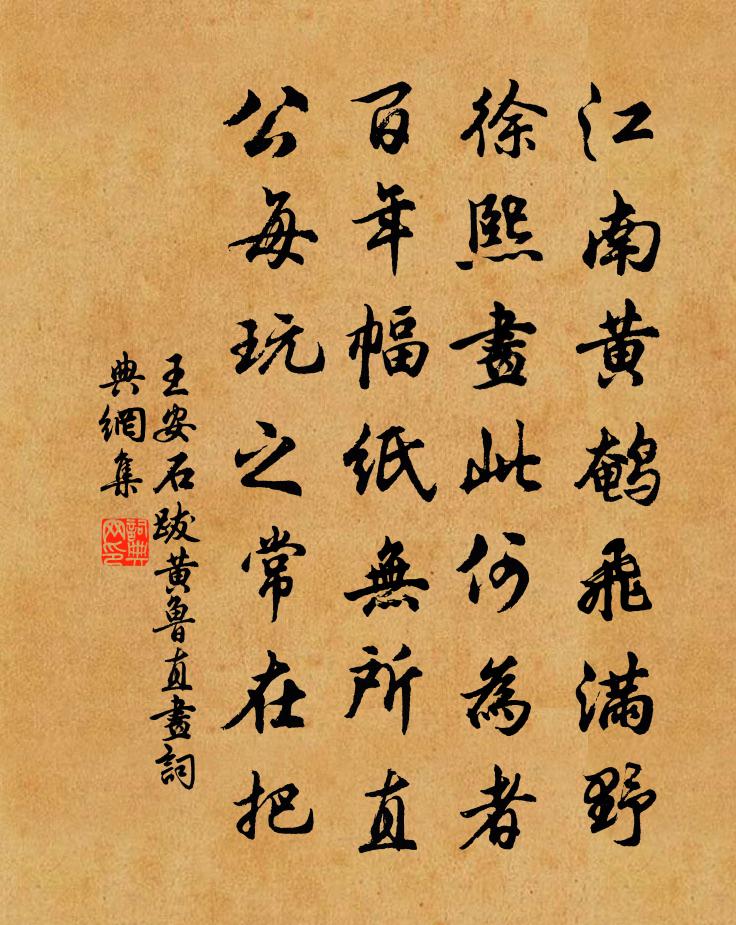 江南黄鹌飛滿野
徐熙畫此何為者
百年幅紙無所直
公每玩之常在把
王安石跋黄魯直畫詞
典網集
詞典網印